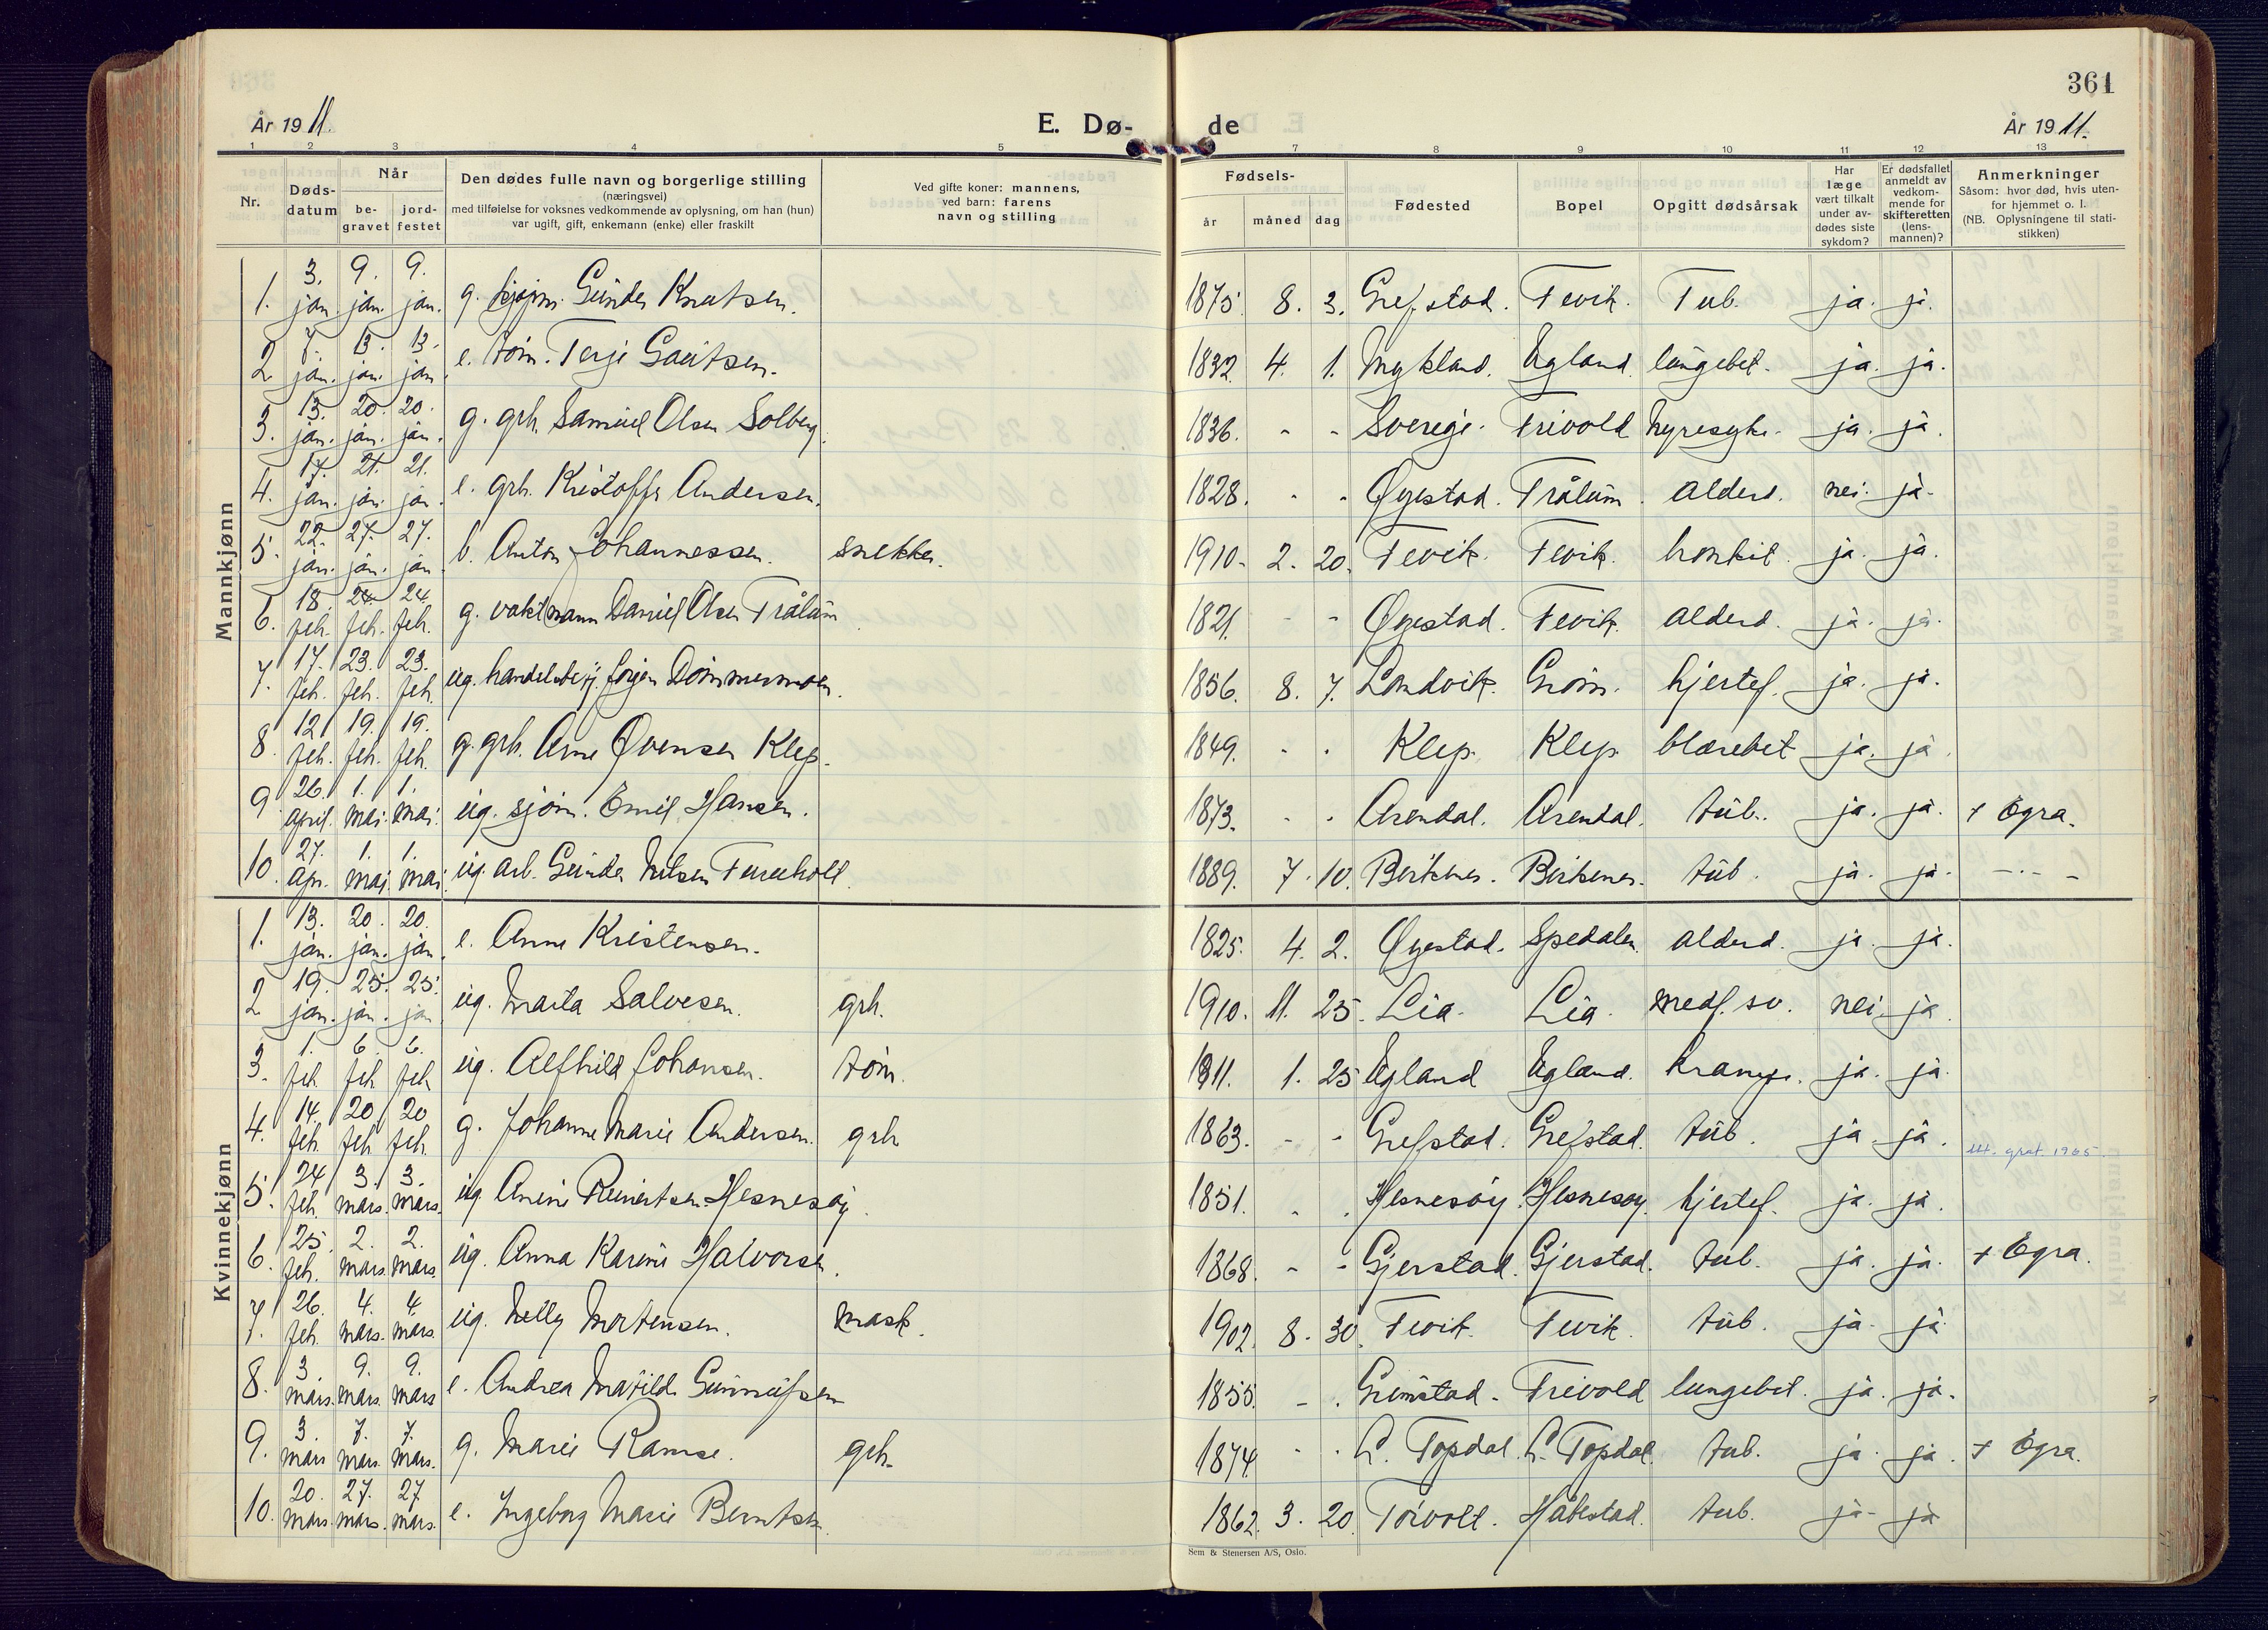 361
År 19 11.
E. Dø-
de
År 19 11.
1 2 3 4 5 7 8 9 10 11 12 13
Nr.
Døds-
datum
Når
be-
gravet
jord-
festet
Den dødes fulle navn og borgerlige stilling
(næringsvei)
med tilføielse for voksnes vedkommende av oplysning, om han (hun)
var ugift, gift, enkemann (enke) eller fraskilt
Ved gifte koner: mannens,
ved barn: farens
navn og stilling
Fødsels-
år måned dag
Fødested
Bopel
Opgitt dødsårsak
Har
læge
vært tilkalt
under av-
dødes siste
sykdom?
Er dødsfallet
anmeldt av
vedkom-
mende for
skifteretten
(lens-
mannen)?
Anmerkninger
Såsom: hvor død, hvis uten-
for hjemmet o. l.
(NB. Oplysningene til stati-
stikken)
Mannkjønn
1. 3. jan. 9. jan. 9. jan. g. Gunder Knutsen. 1875. 8. 3. Grefstad. Fevik. Tub. ja. ja.
2 7. jan. 13. jan. 13. jan. e. tøm. Terje Gautsen. 1832. 4. 1. Mykland. Ugland. lungebet. ja. ja.
3. 13. jan. 20. jan. 20. jan. g. grb. Samuel Olsen Solberg. 1836. - - Sverige. Trivold nyresyke. ja. ja.
4. 17. jan. 21. jan. 21. jan. e. grb. Kristoffer Andersen. 1828. - - Øyestad. Trålum. alderd. nei. ja.
5. 22. jan. 27. jan. 27. jan. b. Anton Johannessen. snekker. 1910. 2. 20. Fevik. Fevik. bronkit. ja. ja.
6. 18. feb. 24. feb. 24. feb. g. vaktmann Daniel Olsen Trålum 1821. - - Øyestad. Fevik. alderd. ja. ja.
7. 17. feb. 23. feb. 23. feb. ug. handelsbetj. Jørgen Dømmesmoen. 1856. 8. 7. Landvik. Grøm. hjertef. ja. ja.
8. 12 feb. 19. feb. 19. feb. g. grb. Arne Øvensen Klep. 1849. - - Klep. Klep blærebet ja. ja
9 26. april. 1. mai. 1. mai. ug. sjøm. Emil Hansen. 1873. - - Arendal. Arendal. tub. ja. ja. + Egra.
10. 27. apr. 1. mai. 1. mai. ug. arb. Gunder Nilsen Tureholt. 1889. 7. 10. Birkenes. Birkenes. tub. ja. ja. -.- -
Kvinnekjønn
1. 13. jan. 20. jan. 20. jan. e. Anne Kristensen. 1825. 4. 2. Øyestad. Spedalen. alderd. ja. ja.
2 19. jan. 25. jan. 25. jan. ug. Marta Salvesen. grb. 1910. 11. 25. Lia. Lia. medf. sv. nei. ja.
3. 1. feb. 6. feb. 6. feb. ug. Alfhild Johansen. tøm. 1911. 1. 25 Ugland Ugland. krampe. ja. ja.
4. 14. feb. 20. feb. 20 feb. g. Johanne Marie Andersen. grb 1863. - - Grefstad. Grefstad. tub. ja. ja.
utt. grat. 1965.
5. 24 feb. 3. mars. 3. mars. ug. Anine Reiertsen Hesnesøy. 1851. - - Hesnesøy. Hesnesøy. hjertef. ja. ja.
6. 25. feb. 2. mars. 2. mars ug. Anna Karine Halvorsen. 1868. - - Gjerstad. Gjerstad. tub. ja. ja. + Egra.
7. 26. feb. 4. mars. 4. mars ug. Nelly Mortensen. mask. 1902. 8. 30. Fevik. Fevik. tub. ja. ja
8. 3. mars. 9. mars 9. mars e. Andrea Matilde Gunnufsen 1855. - . Grimstad. Trivold lungebet. ja. ja.
9. 3. mars 7. mars. 7. mars. g. Marie Ramse. grb. 1874. - - L. Topdal. L. Topdal. tub. ja. ja. + Egra.
10. 20. mars. 27. mars. 27 mars. e. Ingeborg Marie Berntsen. 1862. 3. 20. Toivoll. Håbestad. tub. ja - ja
Sem & Stenersen A/S, Oslo.